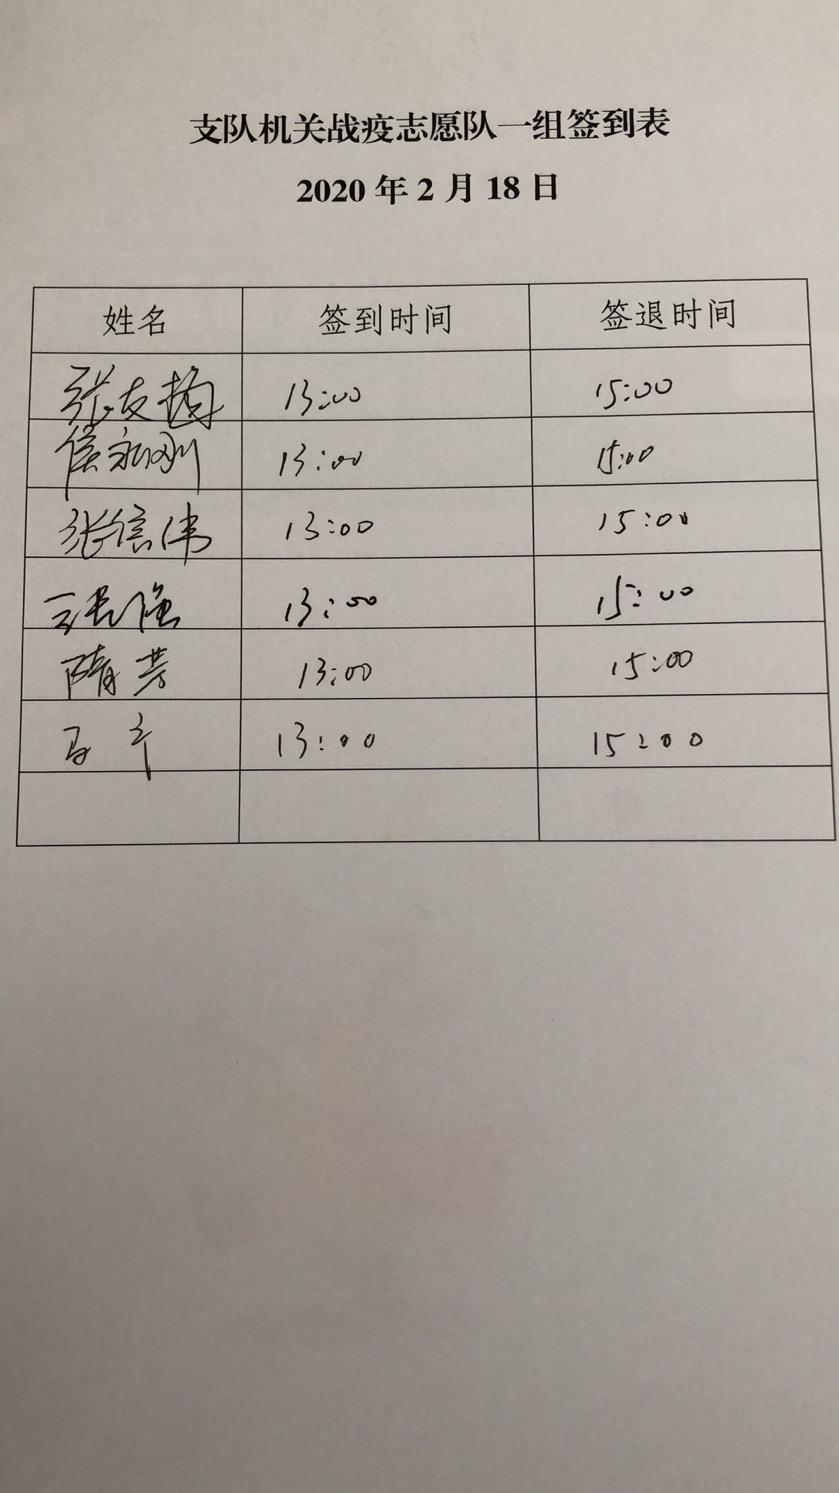 支队机关战疫志愿队一组签到表
2020年2月18日
姓名 签到时间 签退时间
张友梅 13:00 15:00
侯永刚 13:00 15:00
张信伟 13:00 15:00
13:00 15:00
隋芳 13:00 15:00
13:00 15:00